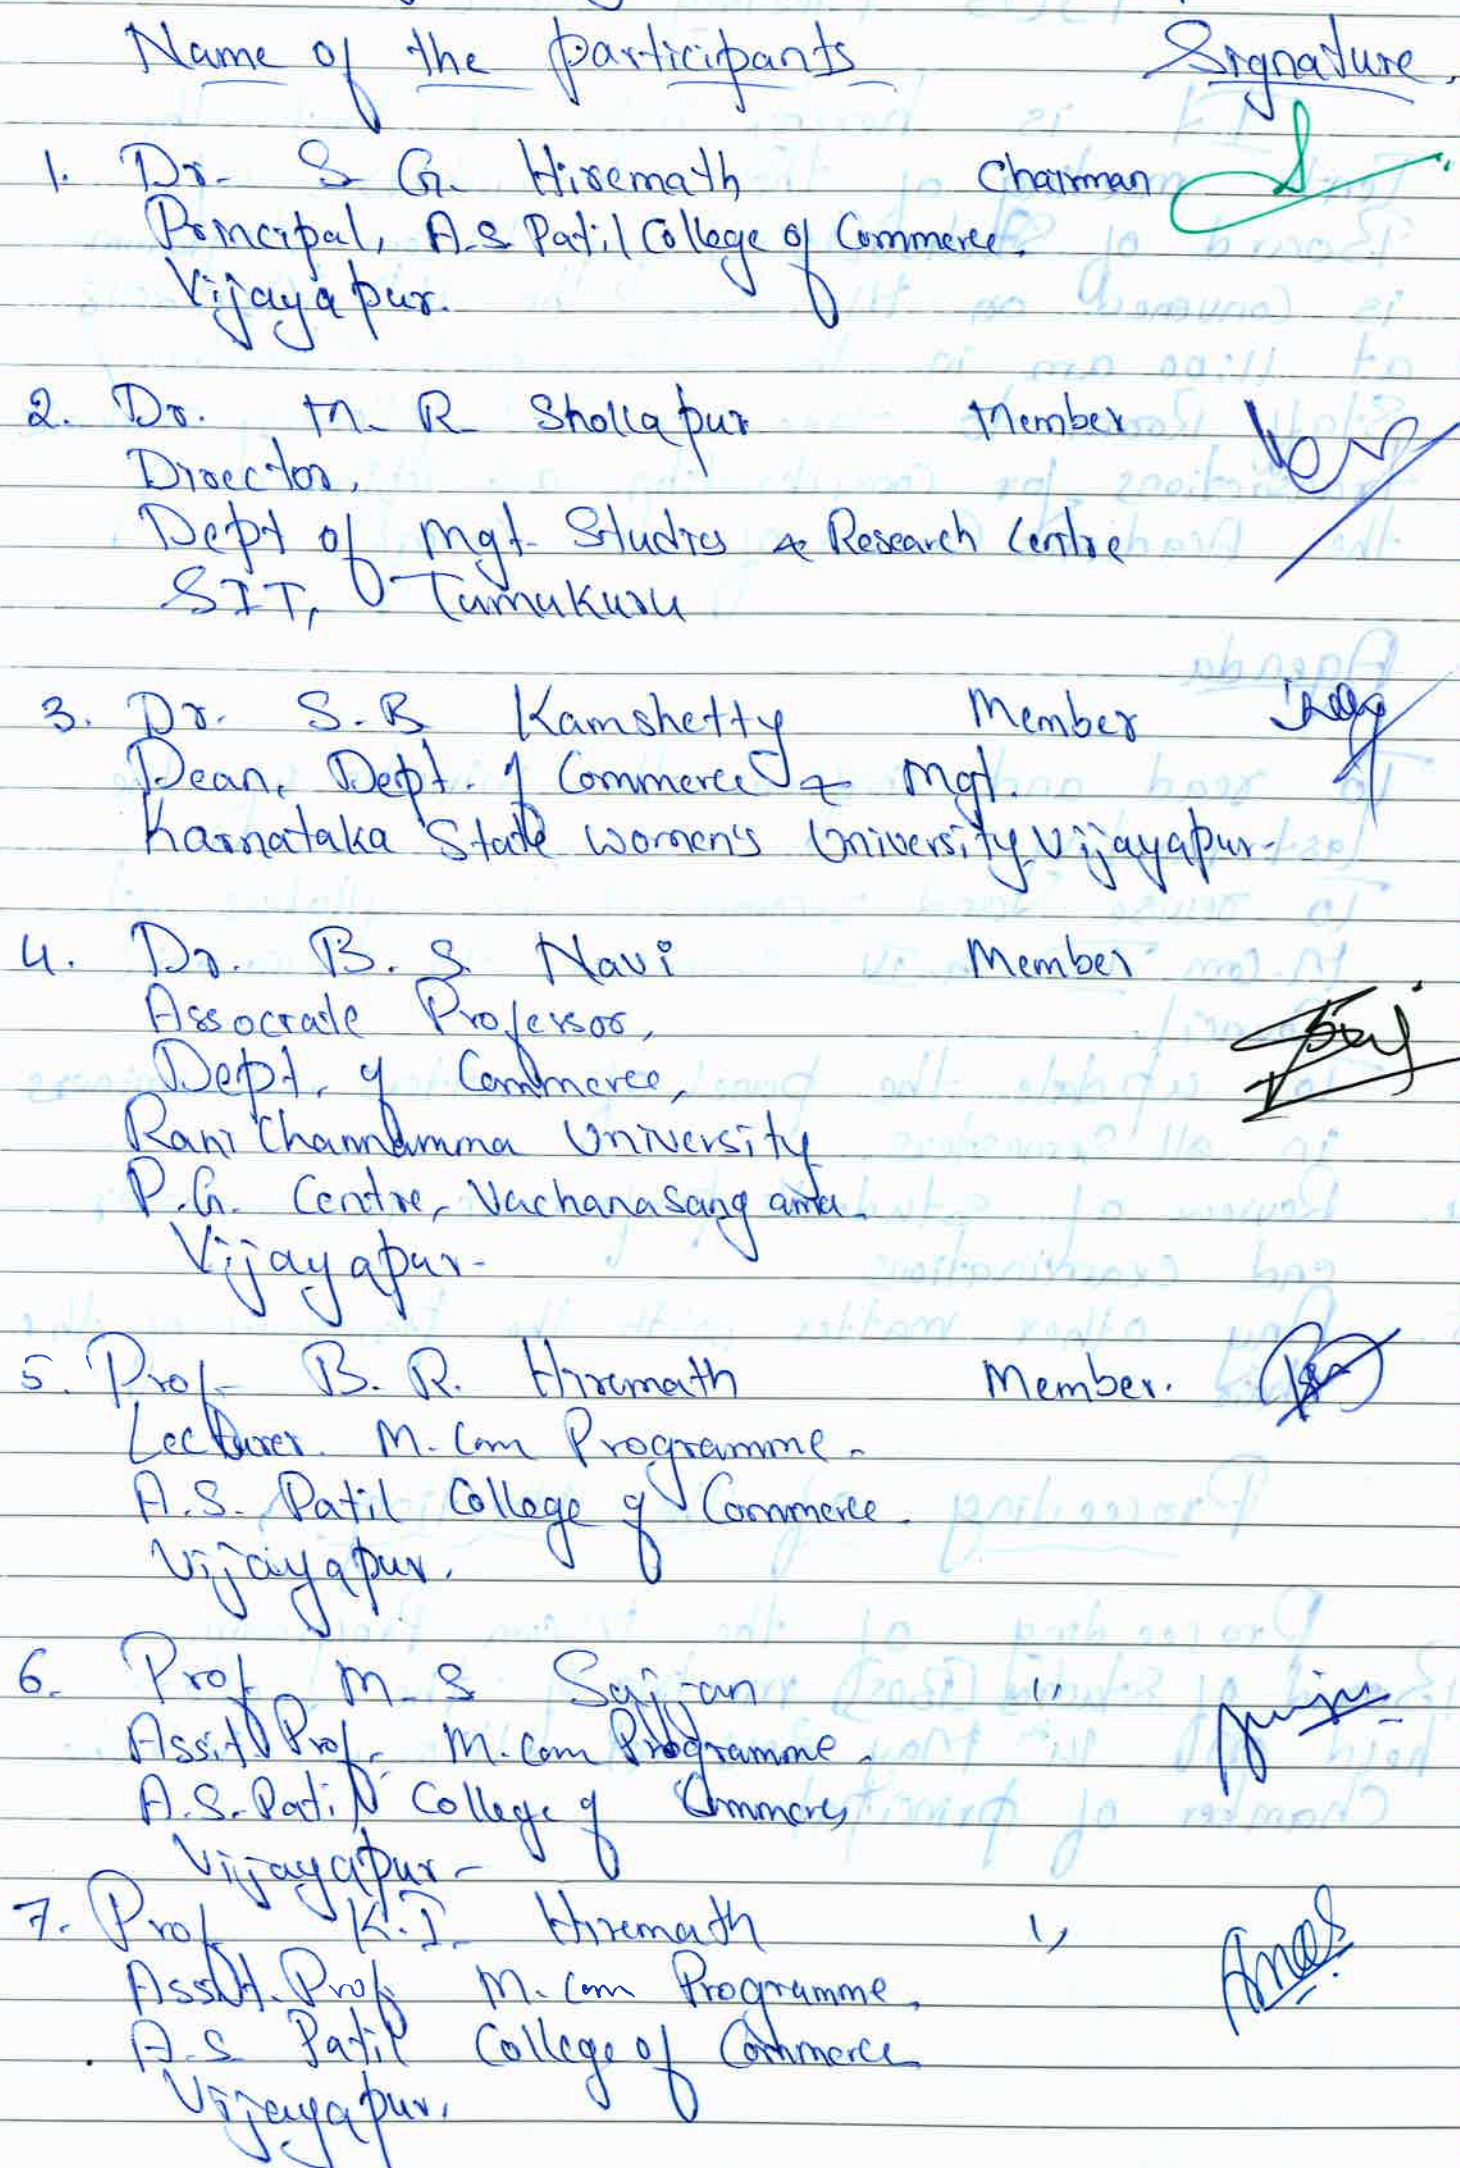 Name of the participants Signature.
1. Dr. S G. Hiremath Chairman
Principal, A.S Patil College of Commerce.
Vijayapur.
2. Dr. M. R. Shollapur Member
Director,
Dept of Mgt. Studies & Research Centre
SIT, Tumukuru
3. Dr. S.B Kamshetty Member
Dean, Dept. of Commerce & Mgt.
Karnataka State Women's University Vijayapur.
4. Dr. B. S. Navi Member
Associate Professor,
Dept. of Commerce,
Rani Channamma University
P.G. Centre, Vachanasangama.
Vijayapur.
5. Prof. B. R. Hiremath Member.
Lecturer. M.Com Programme.
A.S. Patil College of Commerce.
Vijayapur.
6. Prof M. S Sajjan "
Assit. Prof. M.Com Programme.
A.S. Patil College of Commerce,
Vijayapur.
7. Prof K.I. Hiremath "
Asst. Prof. M.Com Programme,
A.S. Patil College of Commerce
Vijayapur.